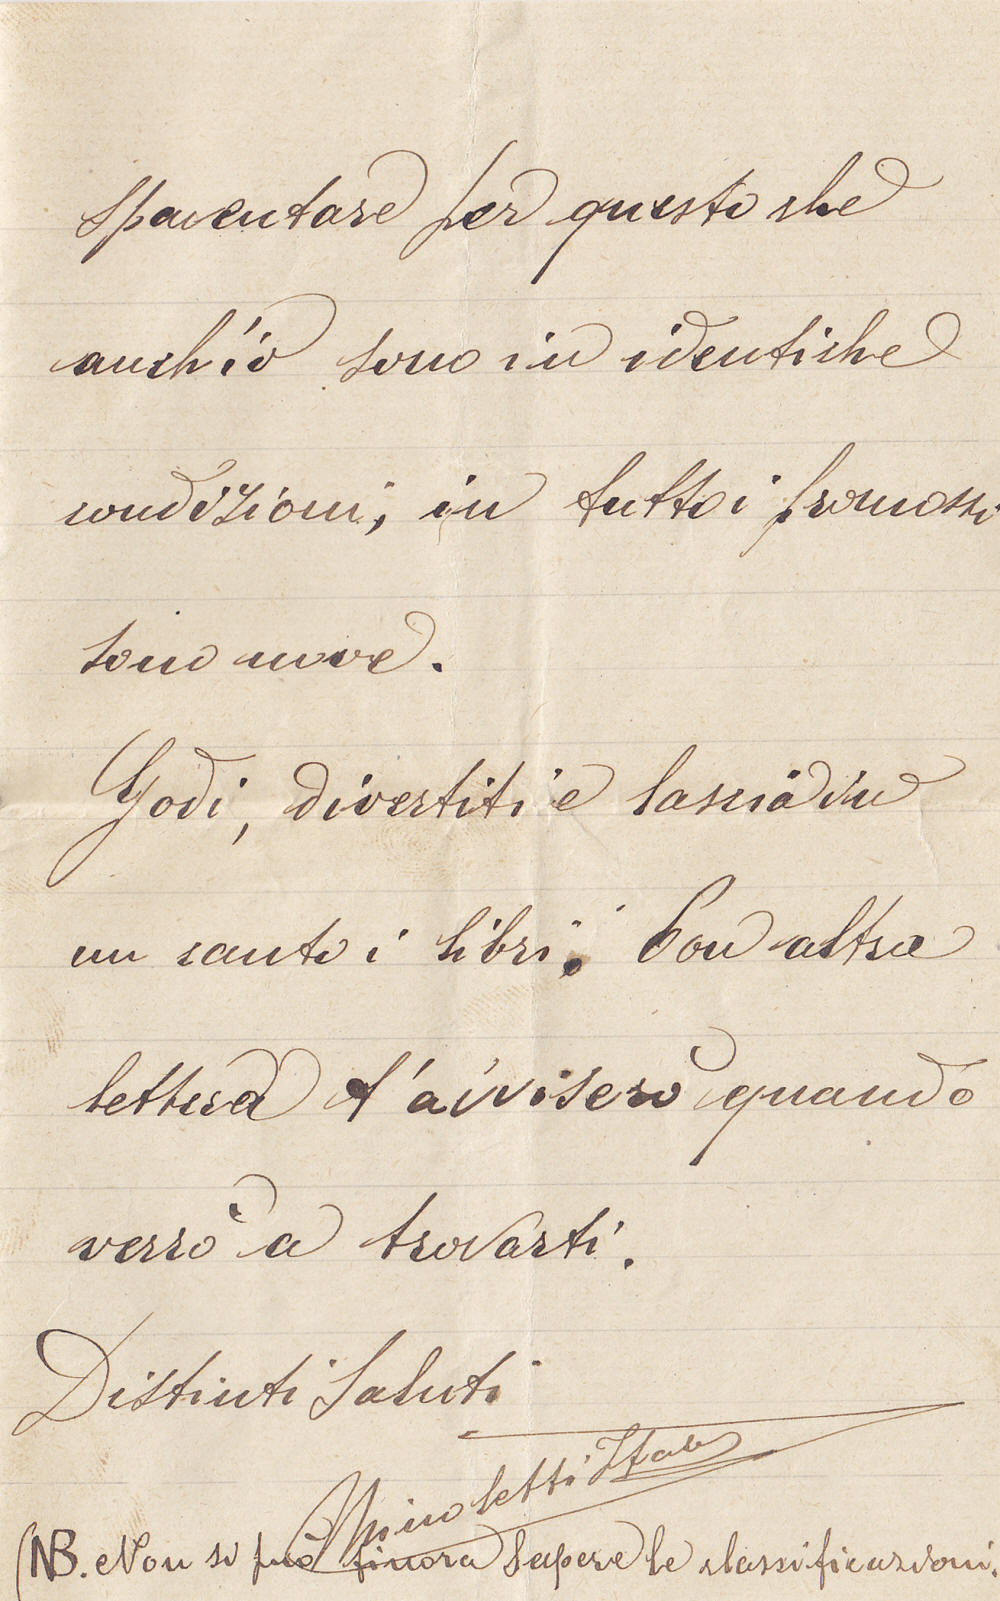 spaventare per questo che
anch'io sono in identiche
condizioni, in tutto i promossi
sono nove.
Godi, divertiti e lascia in
un canto i libri. Con altra
lettera t'avviserò quando
verrò a trovarti.
Distinti Saluti
(NB. Non si può finora sapere le classificazioni.